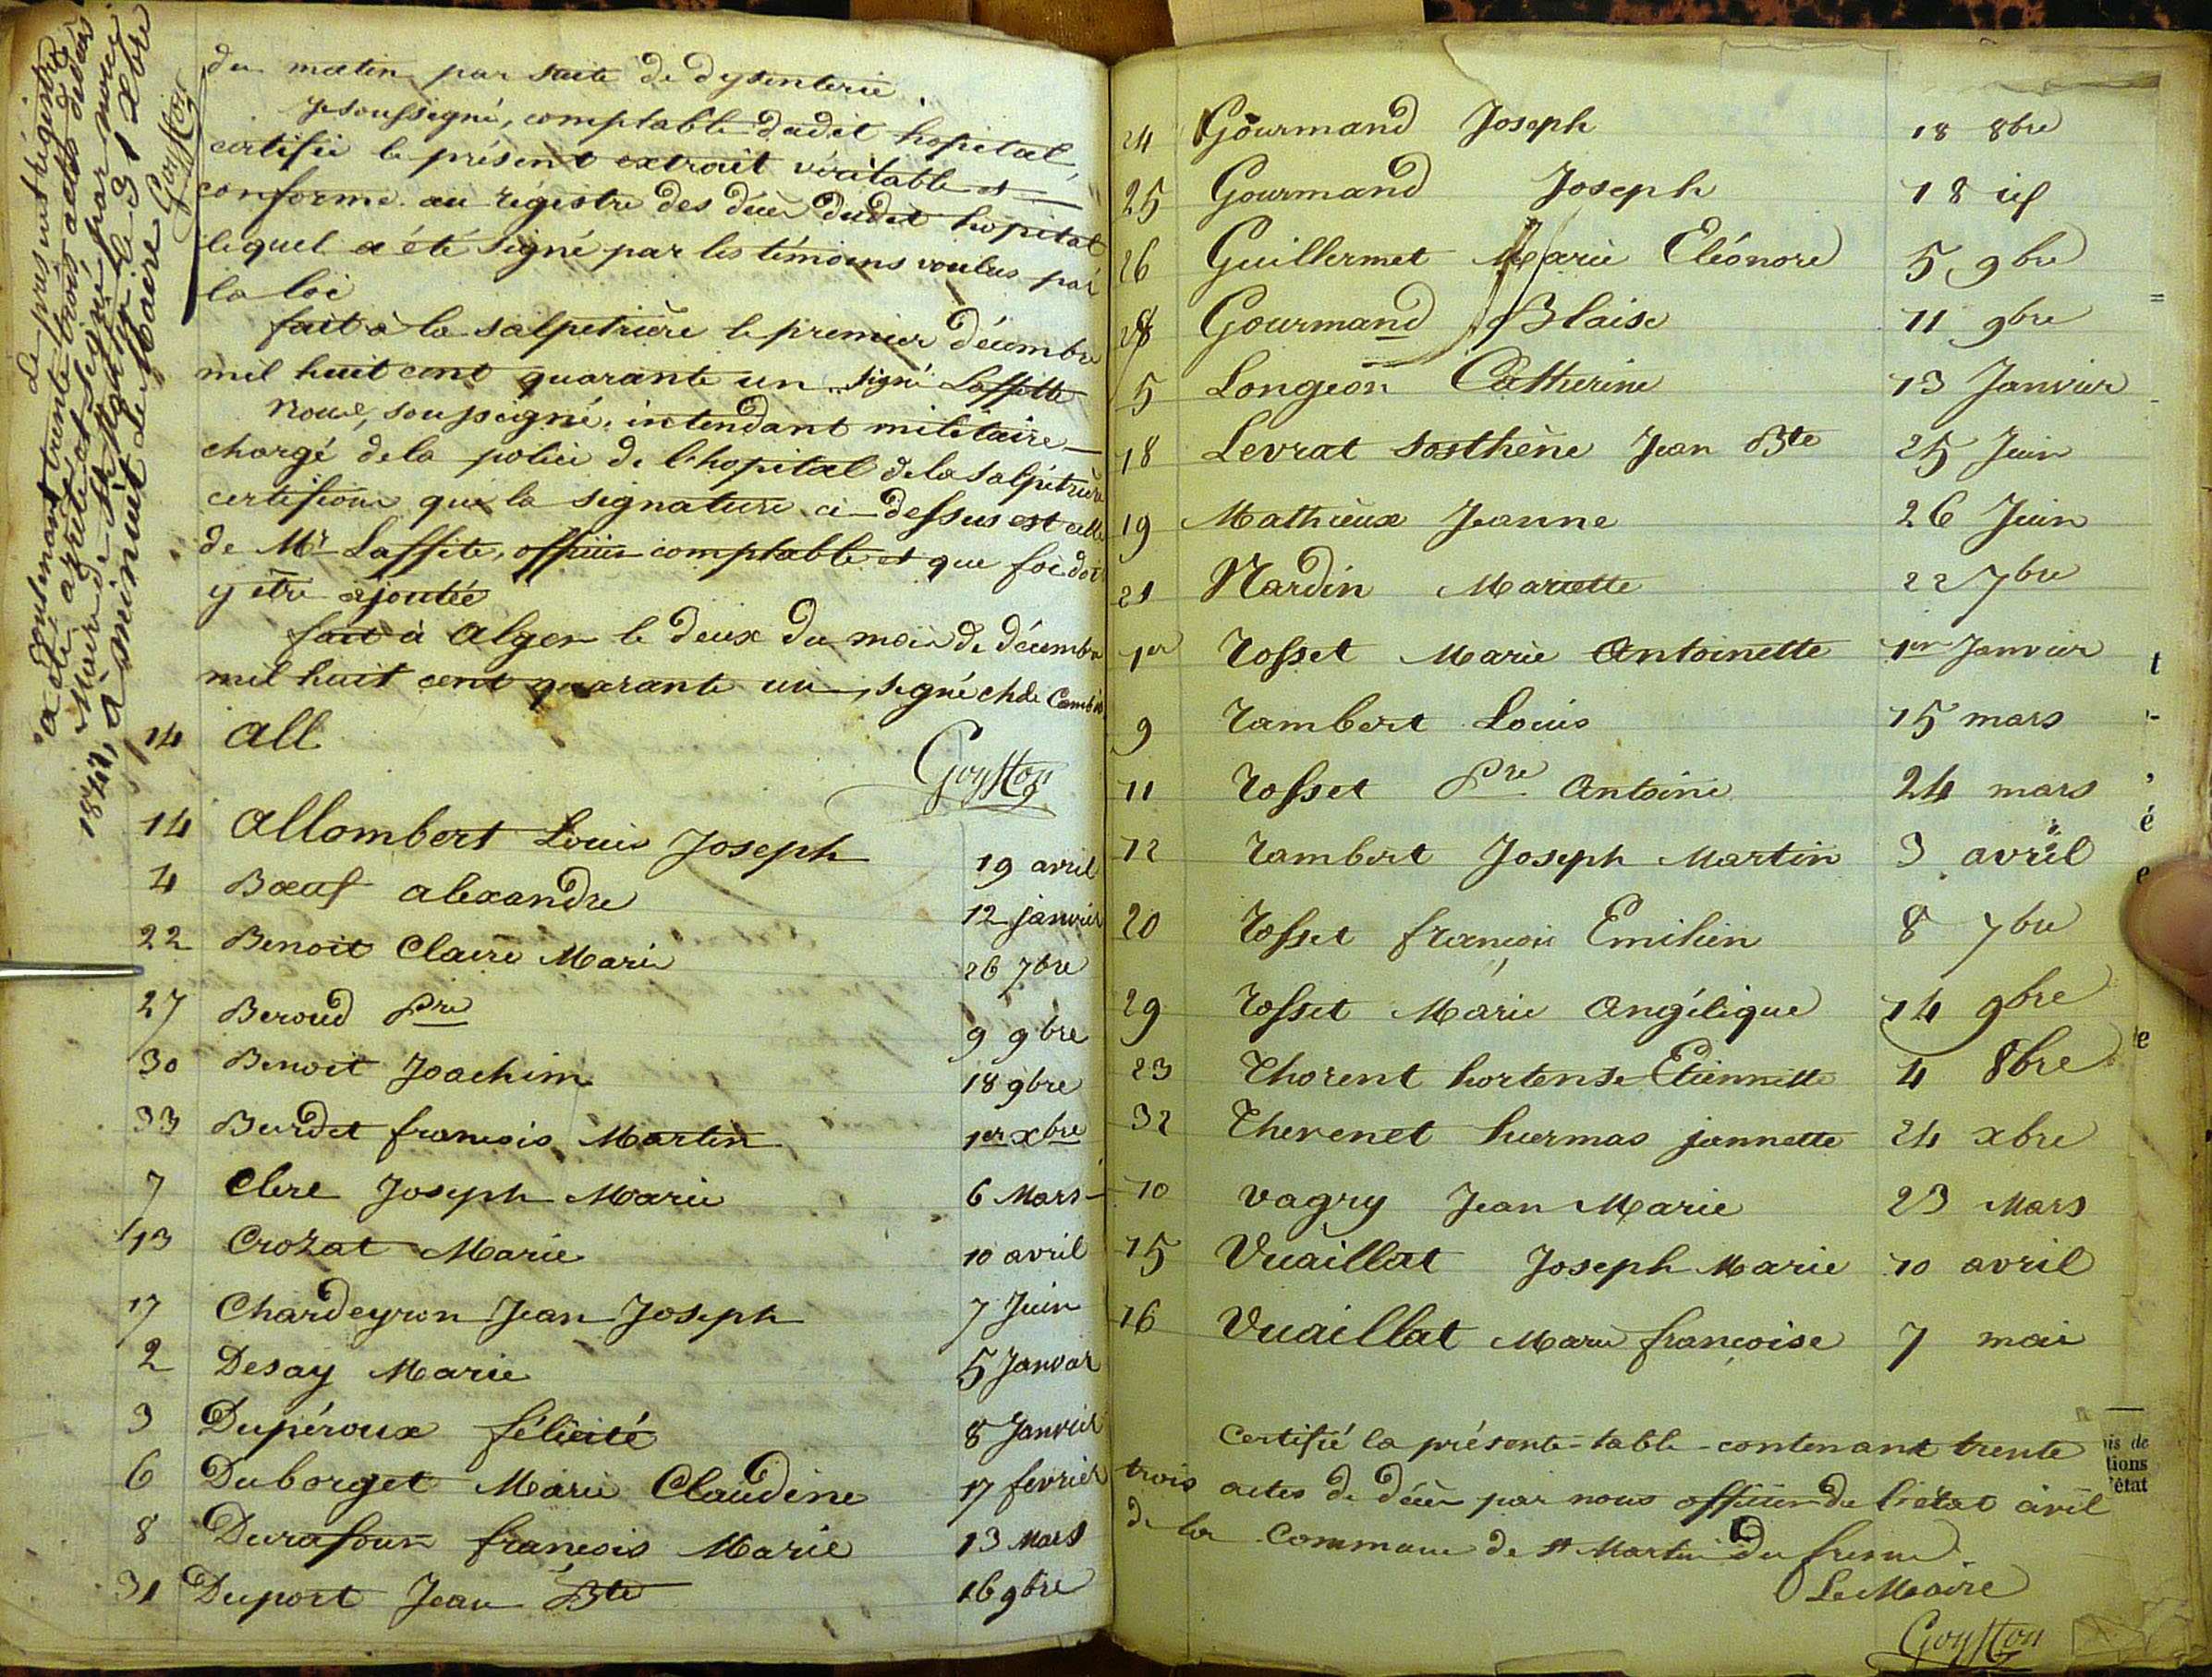 Le présent régistre
contenant trente trois actes de décès
a été arrêté et signé par nous
Maire de St Martin le 31 xbre
1841, à minuit Le Maire
du matin par suite de dysenterie.
Je soussigné, comptable dudit hopital,
certifie le présent extrait véritable et
conforme au régistre des décès dudit hopital
lequel a été signé par les témoins voulus par
la loi
fait à la salpetrière le premier décembre
mil huit cent quarante un signé Laffitte
Nous, soussigné, intendant militaire
chargé de la police de l'hopital de la Salpétrière
certifions que la signature ci-dessus est celle
de Mr Laffite, officier comptable et que foi doit
y être ajoutée
fait à Alger le deux du mois de décembre
mil huit cent quarante un, signé ch de
14 all
14 allombert Louis Joseph 19 avril
4 Bœuf alexandre 12 janvier
22 Benoit Claire Marie 26 7bre
27 Beroud Pre 9 9bre
30 Benoit Joachim 18 9bre
33 Burdet françois Martin 1er xbre
7 Clere Joseph Marie 6 Mars
13 Crozat Marie 10 avril
17 Chardeyron Jean Joseph 7 Juin
2 Desay Marie 5 Janvier
3 Dupéroux félicité 8 Janvier
6 Duborget Marie Claudine 17 fevrier
8 Durafour françois Marie 13 Mars
31 Duport Jean Bte 16 9bre
24 Gourmand Joseph 18 8bre
25 Gourmand Joseph 18
26 Guillermet Marie Eléonore 5 9bre
28 Gourmand Blaise 11 9bre
5 Longeon Catherine 13 Janvier
18 Levrat Sosthène Jean Bte 25 Juin
19 Mathieux Jeanne 26 Juin
21 Nardin Mariette 22 7bre
1er Rosset Marie Antoinette 1er Janvier
9 Rambert Louis 15 mars
11 Rosset Pre Antoine 24 mars
12 Rambert Joseph Martin 3 avril
20 Rosset françois Emilien 8 7bre
29 Rosset Marie Angélique 14 9bre
23 Thorent hortense Etiennette 4 8bre
32 Thevenet huermas jannette 24 xbre
10 vagry Jean Marie 23 Mars
15 Vuaillat Joseph Marie 10 avril
16 Vuaillat Marie françoise 7 mai
Certifié la présente table contenant trente
trois actes de décès par nous officier de l'état civil
de la Commune de St Martin Du fresne
Le Maire
is de
tions
l'état